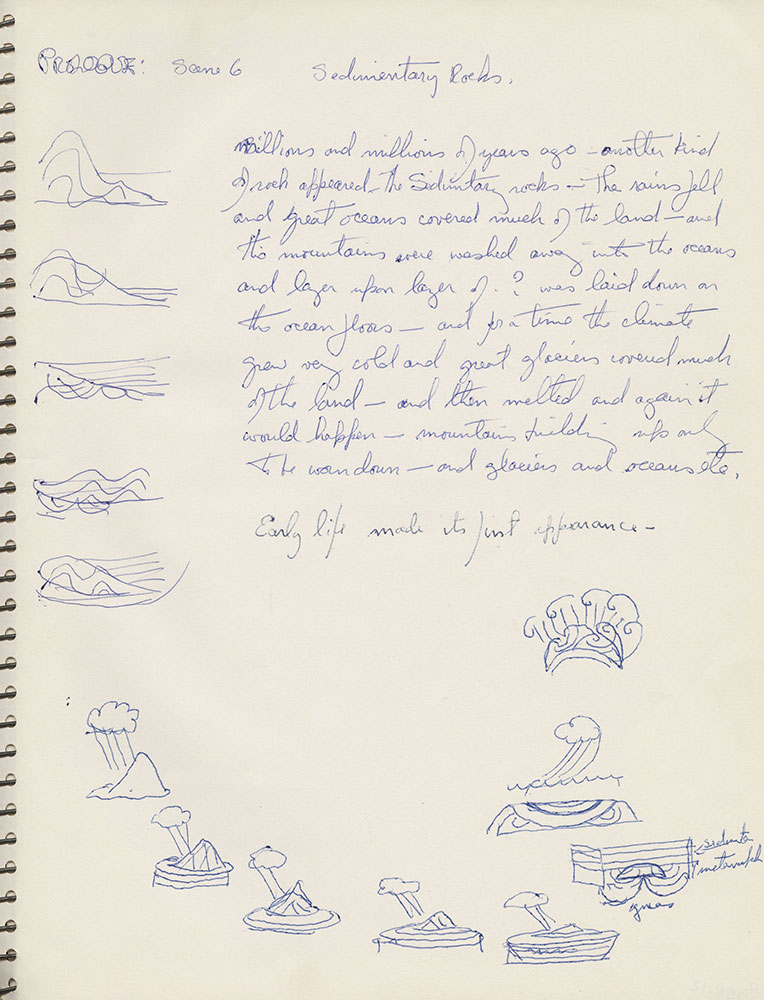 PROLOGUE: Scene 6 Sedimentary Rocks.
Millions and millions of years ago – another kind
of rock appeared – the Sedimentary rocks – The rains fell
and great oceans covered much of the land – and
the mountains were washed away into the oceans
and layer upon layer of . ? was laid down on
the ocean floors – and for a time the climate
grew very cold and great glaciers covered much
of the land – and then melted and again it
would happen – mountains building up only
to be worn down – and glaciers and oceans etc.
Early life made its first appearance –